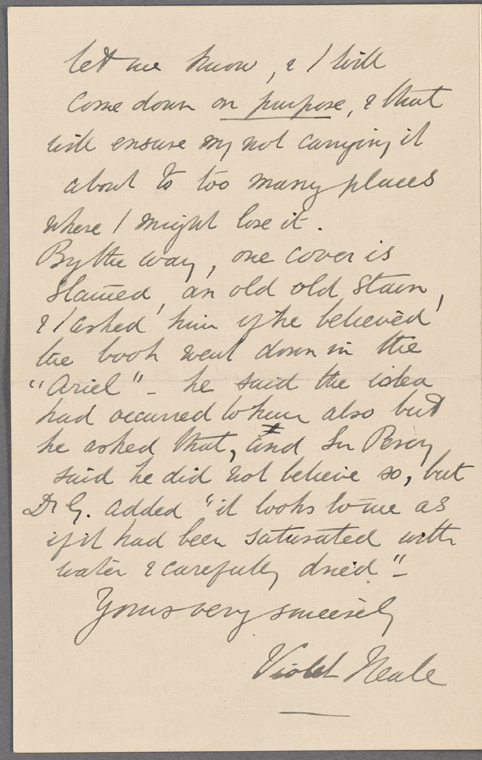 let me know, & I will
come down on purpose, & that
will ensure my not carrying it
about to too many places
where I might lose it.
By the way, one cover is
stained, an old old stain,
& I asked him if he believed
the book went down in the
"Ariel" - he said the idea
had occurred to him also but
he asked that, and Sir Percy
said he did not believe so, but
Dr G. added "it looks to me as
if it had been saturated with
water & carefully dried" -
Yours very sincerely
Violet Neale